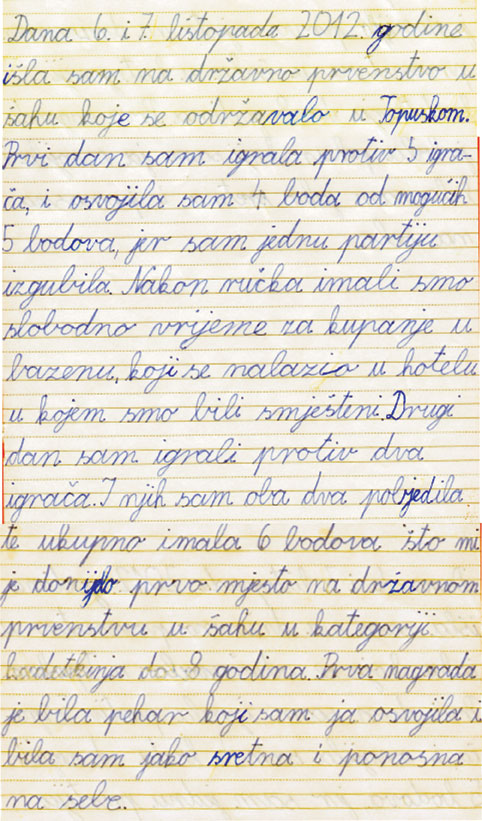 Dana 6. i 7. listopada 2012. godine
išla sam na državno prvenstvo u
šahu koje se održavalo u Topuskom.
Prvi dan sam igrala protiv 5 igra-
ča, i osvojila sam 4 boda od mogućih
5 bodova, jer sam jednu partiju
izgubila. Nakon ručka imali smo
slobodno vrijeme za kupanje u
bazenu, koji se nalazio u hotelu
u kojem smo bili smješteni. Drugi
dan sam igrali protiv dva
igrača. I njih sam oba dva pobjedila
te ukupno imala 6 bodova što mi
je donijelo prvo mjesto na državnom
prvenstvu u šahu u kategoriji
kadetkinja do 8 godina. Prva nagrada
je bila pehar koji sam ja osvojila i
bila sam jako sretna i ponosna
na sebe.